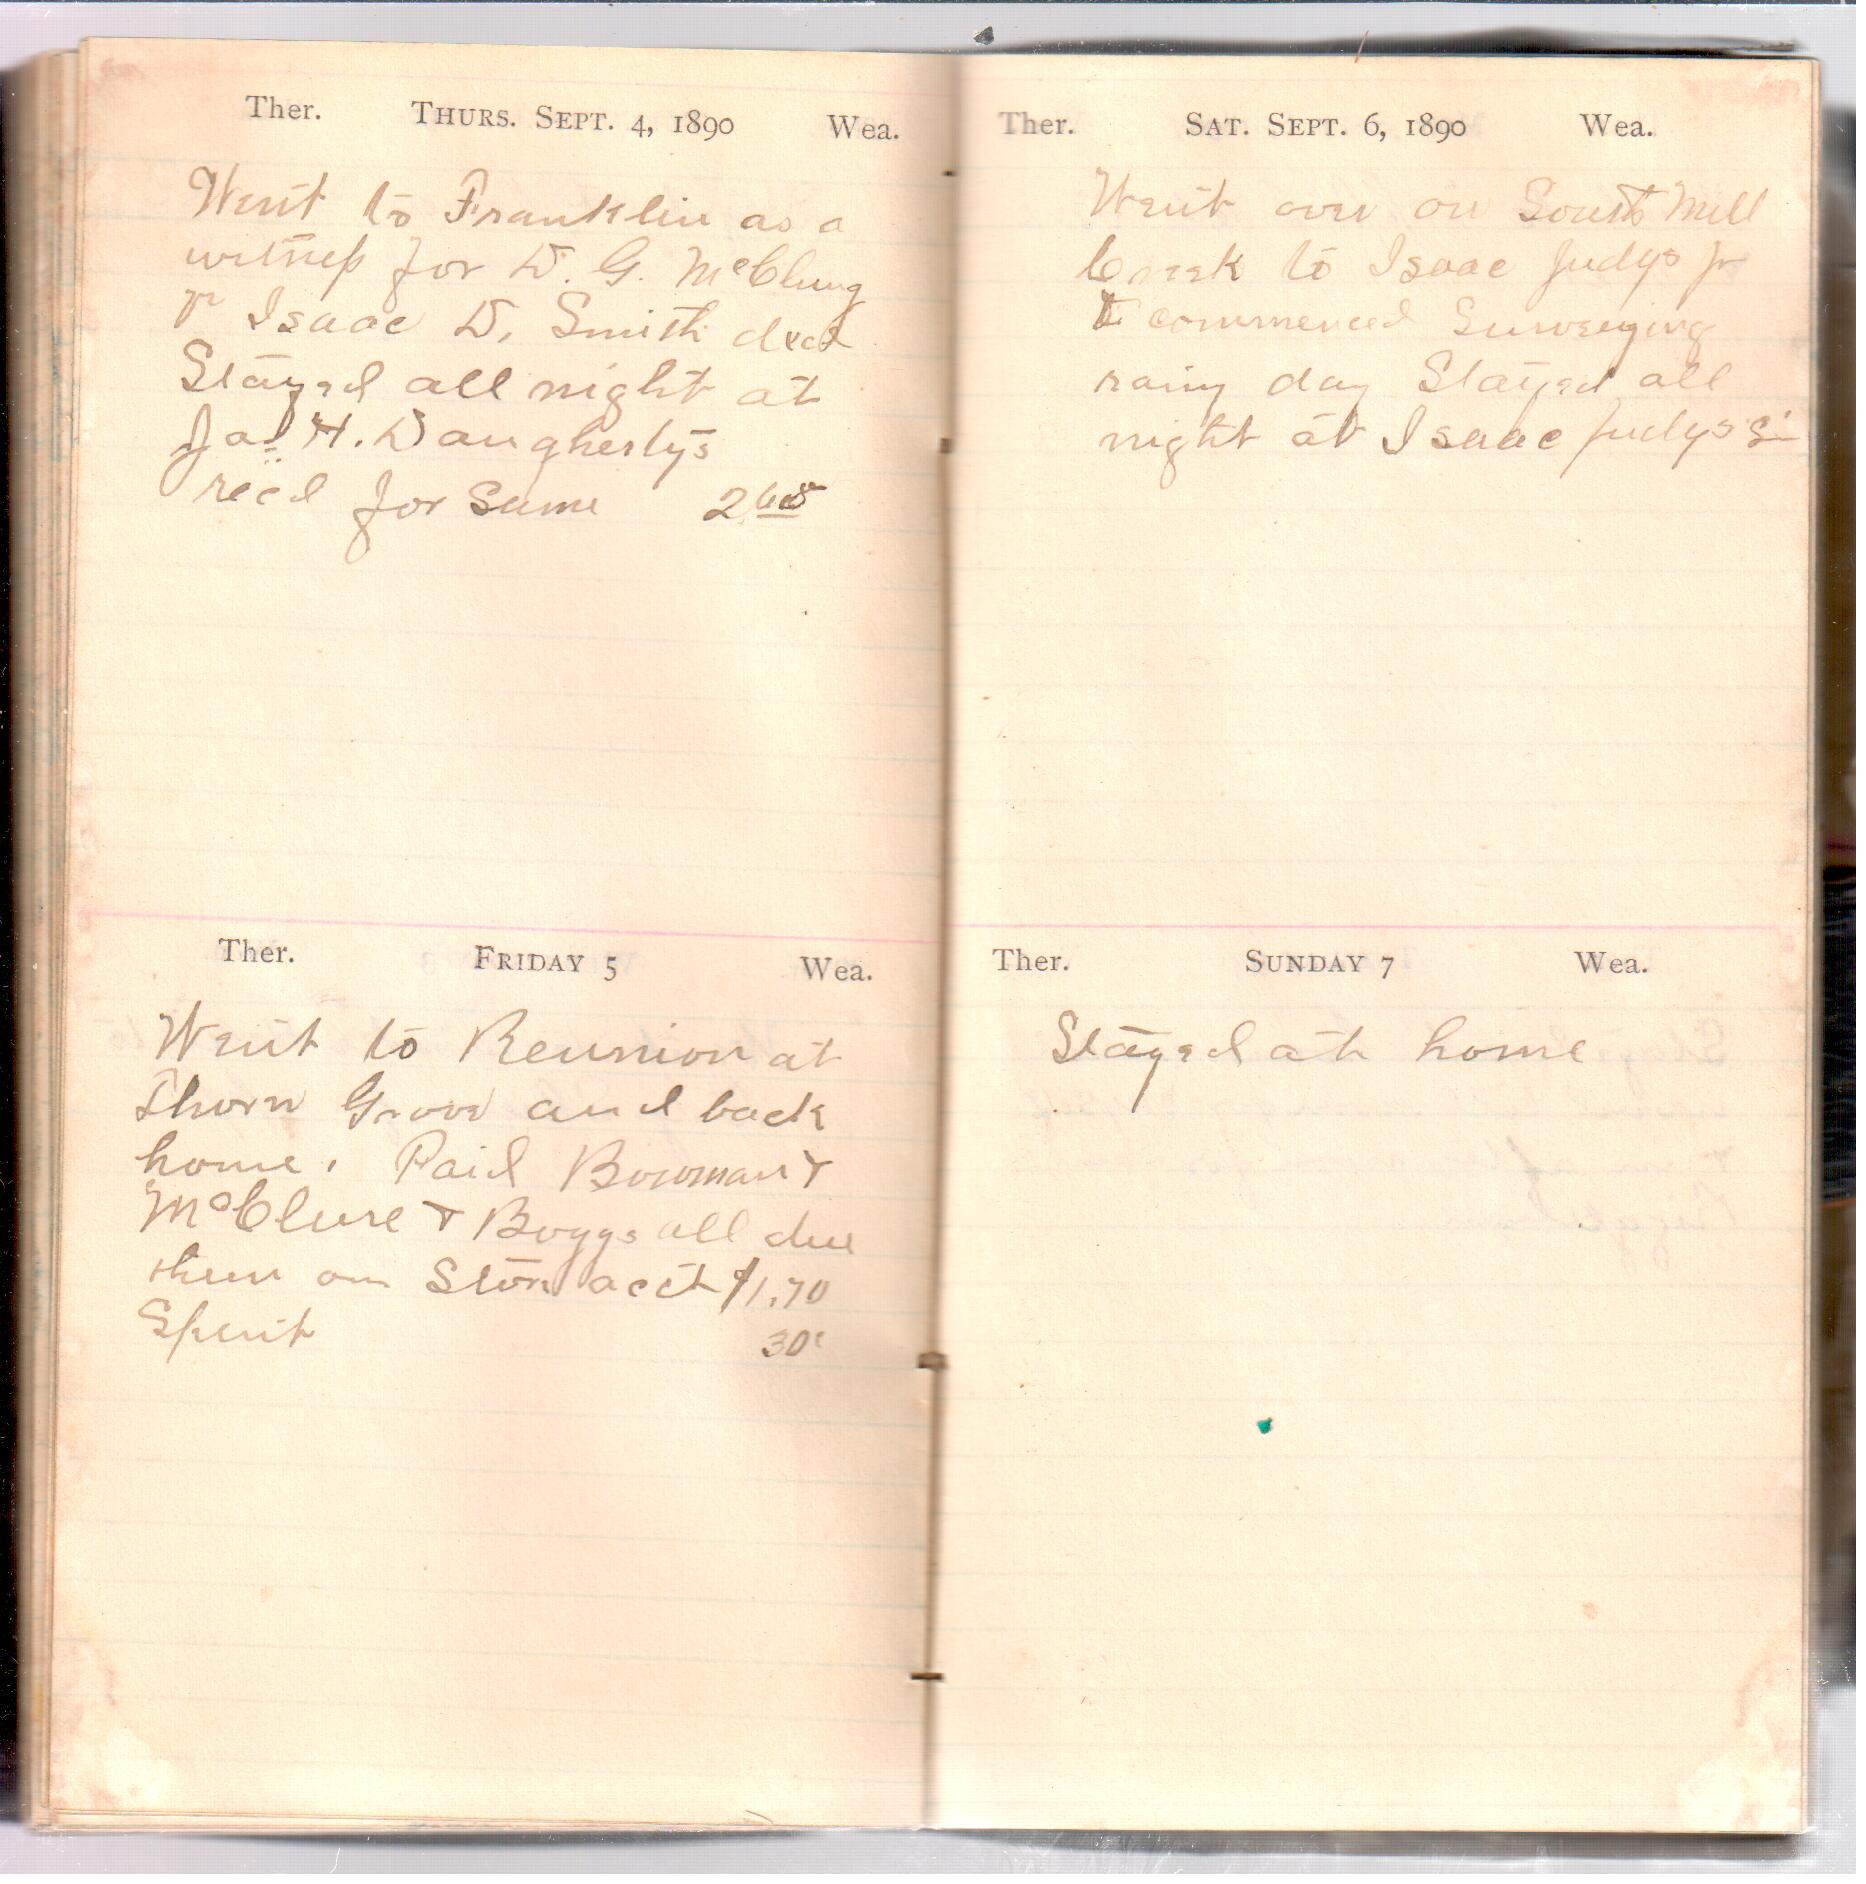 Ther. THURS. SEPT. 4, 1890 Wea.
Went to Franklin as a
witness for D. G. McClung
vs Isaac D. Smith decd
Stayed all night at
Jas H. Daugherty's
recd for same 2.68
Ther. FRIDAY 5 Wea.
Went to Reunion at
Thorn Grove and back
home. Paid Bowman &
McClure & Boggs all due
them on Store acct $1.70
Spent 30c
Ther. SAT. SEPT. 6, 1890 Wea.
Went over on South Mill
Creek to Isaac Judys Jr
& commenced Surveying
rainy day Stayed all
night at Isaac Judys Sr
Ther. SUNDAY 7 Wea.
Stayed at home